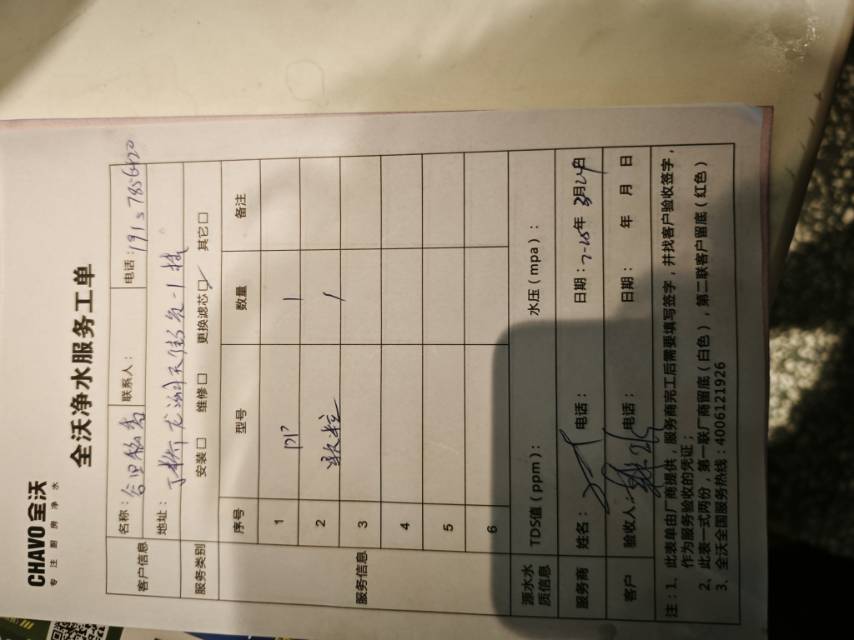 CHAVO全沃
专注厨房净水
全沃净水服务工单
客户信息
名称：
联系人：
电话：
地址：
服务类别
安装□ 维修□ 更换滤芯□ 其它□
服务信息
序号 型号 数量 备注
1 PP 1
2 1
3
4
5
6
源水水质信息
TDS值（ppm）：
水压（mpa）：
服务商 姓名： 电话： 日期： 年3月24日
客户 验收人： 电话： 日期： 年 月 日
注：1、此表单由厂商提供，服务商完工后需要填写签字，并找客户验收签字，
作为服务验收的凭证；
2、此表一式两份，第一联厂商留底（白色），第二联客户留底（红色）
3、全沃全国服务热线：4006121926